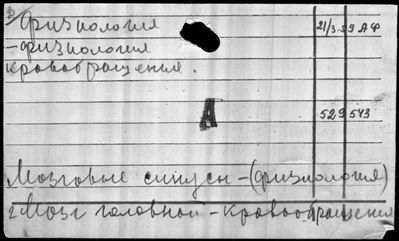 Физиология 21/3-59 АФ
- физиология
кровообращения.
А 529543
Мозговые синусы - (физиология)
2 Мозг головной - кровообращения